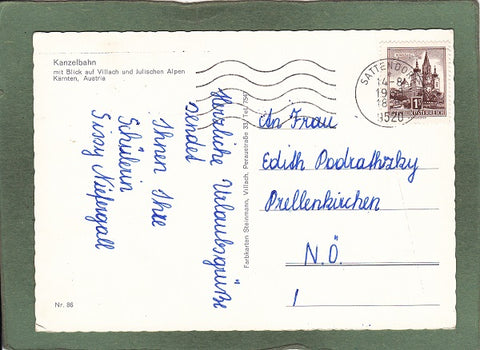 Kanzelbahn
mit Blick auf Villach und Julischen Alpen
Kärnten, Austria
Herzliche Urlaubsgrüße
sendet
Ihnen Ihre
Schülerin
Sissy Niefergall
Nr. 86
Farbkarten Steinmann, Villach, Peraustraße 33, Tel.
SATTENDORF
14-8
19
18
9520
1S
REPUBLIK ÖSTERREICH
An Frau
Edith Podrathzky
Prellenkirchen
N.Ö.